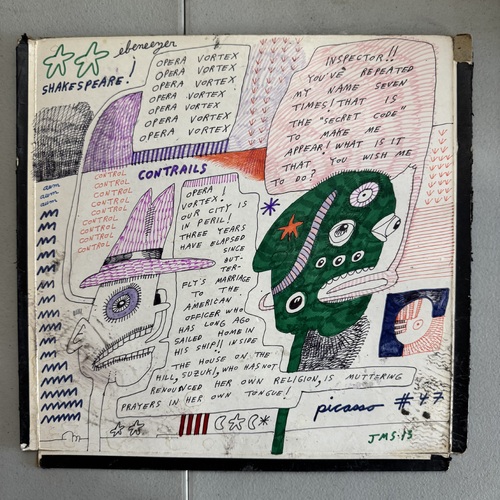 ebeneezer
SHAKESPEARE!
OPERA VORTEX
OPERA VORTEX
OPERA VORTEX
OPERA VORTEX
OPERA VORTEX
OPERA VORTEX
OPERA VORTEX
INSPECTOR!!
YOU'VE REPEATED
MY NAME SEVEN
TIMES! THAT IS
THE "SECRET CODE"
TO MAKE ME
APPEAR! WHAT IS IT
THAT YOU WISH ME
TO DO?
CONTRAILS
CONTROL
CONTROL
CONTROL
CONTROL
CONTROL
CONTROL
CONTROL
CONTROL
CONTROL
OPERA
VORTEX!
OUR CITY IS
IN PERIL!
THREE YEARS
HAVE ELAPSED
SINCE
BUT-
TER-
FLY'S MARRIAGE
TO THE
AMERICAN
OFFICER WHO
HAS LONG AGO
SAILED HOME IN
HIS SHIP!! INSIDE
THE HOUSE ON THE
HILL, SUZUKI, WHO HAS NOT
RENOUNCED HER OWN RELIGION, IS MUTTERING
PRAYERS IN HER OWN TONGUE!
picasso #47
JMS·13